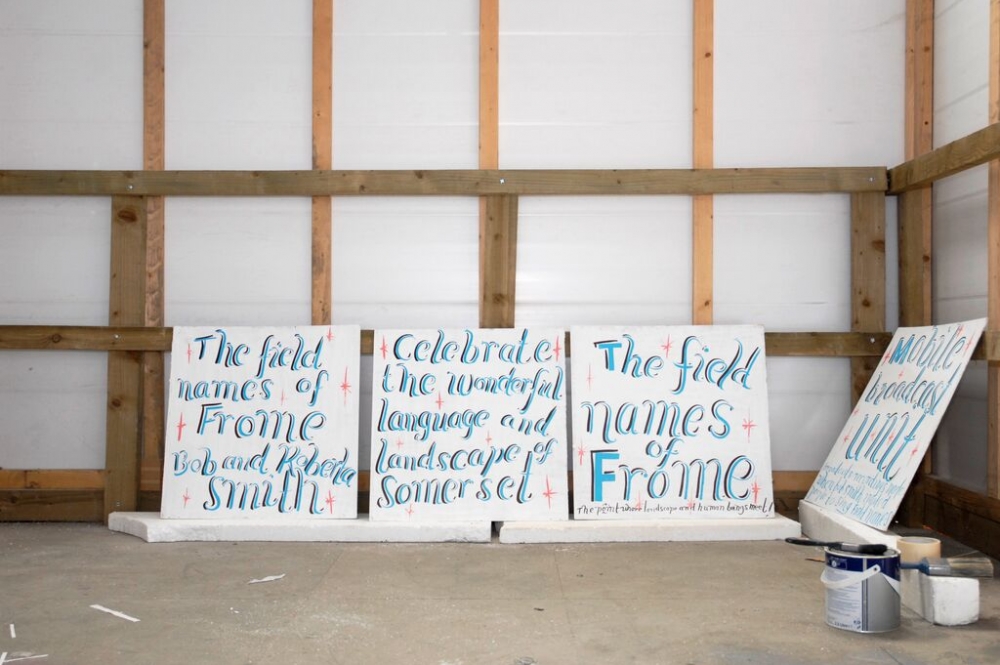 The field
names of
Frome
Bob and Roberta
Smith
Celebrate
the wonderful
language and
landscape of
Somerset
The field
names
of
Frome
The point where landscape and human beings meet!
Mobile
broadcast
unit